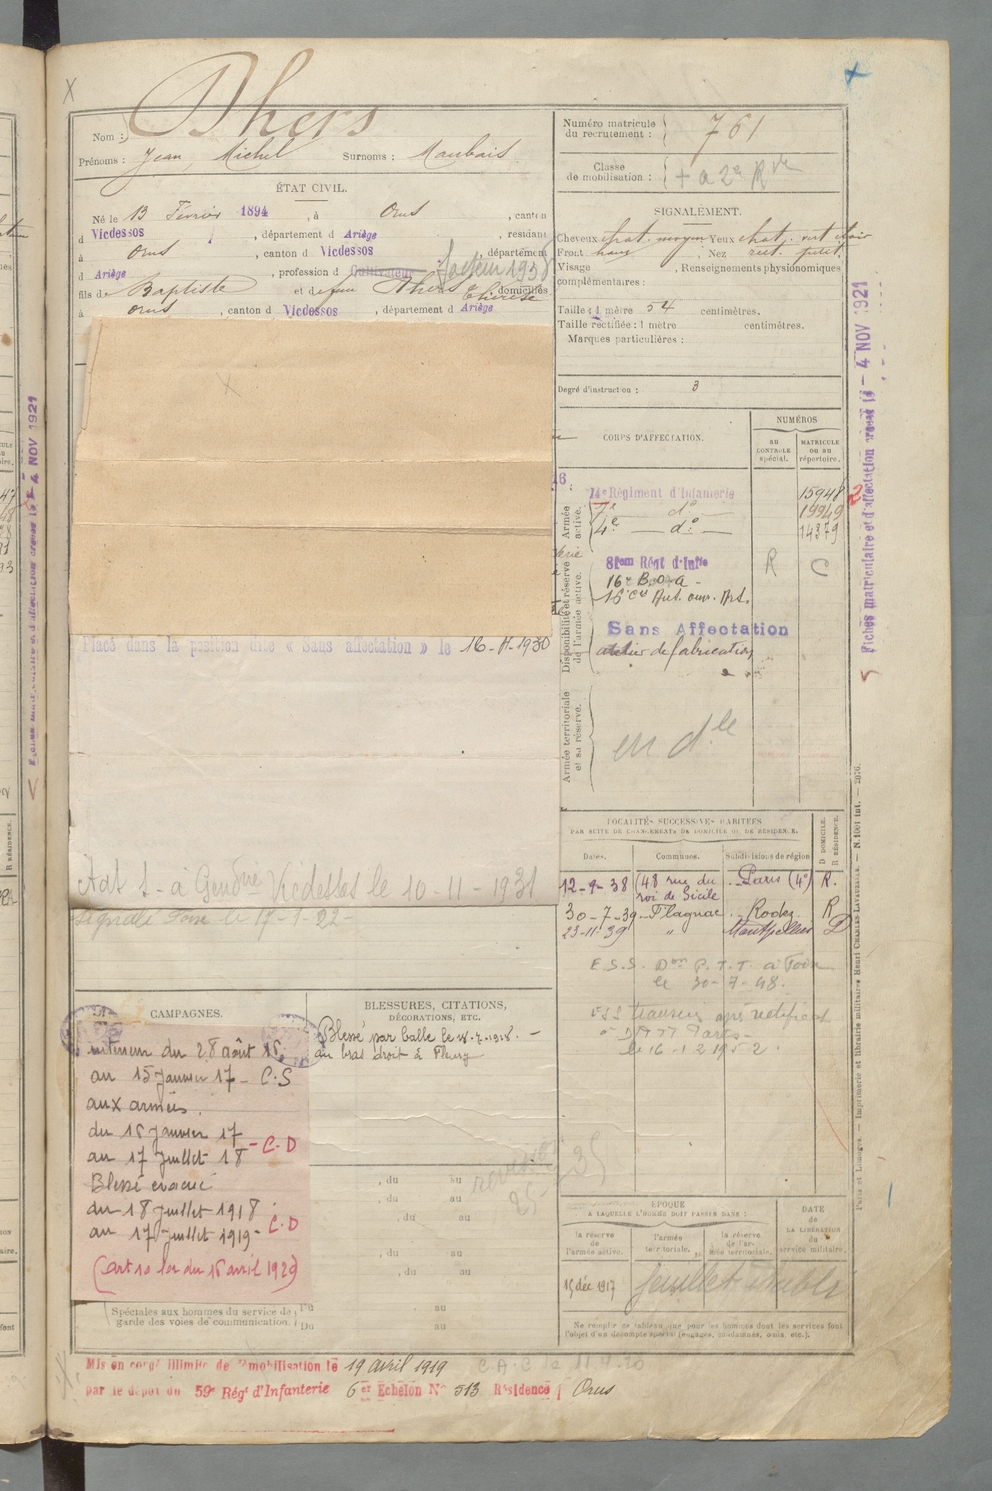 Nom : Dhers
Prénoms : Jean, Michel Surnoms : Maubais.
ÉTAT CIVIL.
Né le 13 Février 1894, à Orus, canton
d Vicdessos, département d Ariège, résidant
à Orus, canton d Vicdessos, département
d Ariège, profession d Cultivateur facteur 1938
fils de Baptiste et de feu Dhers Thérèse, domiciliés
à Orus, canton d Vicdessos, département d Ariège
Placé dans la position dite « Sans affectation » le 16-4-1930
à Gendrie Vicdessos le 10-11-1931
Signalé le 17-1-22-
CAMPAGNES.
intérieur du 28 août 16,
au 15 Janvier 17 - C.S
aux armées.
du 16 Janvier 17
au 17 Juillet 18 - C.D
Blessé évacué
du 18 Juillet 1918
au 17 Juillet 1919 - C.D
(art 10 loi du 16 avril 1929)
Spéciales aux hommes du service de
garde des voies de communication.
Du au
Du au
BLESSURES, CITATIONS,
DÉCORATIONS, ETC.
Blessé par balle le 18-7-1918. -
au bras droit à Fleury
, du au
, du au
, du au
, du au
, du au
Mis en congé illimité de démobilisation le 19 avril 1919
par le dépôt du 59e Régt d'Infanterie 6er Echelon No 513 Résidence Orus
C A.C le 11.4.20
Numéro matricule
du recrutement : 761
Classe
de mobilisation : + à 2e Rve
SIGNALEMENT.
Cheveux chat. moyen Yeux chat. vert clair
Front haut, Nez rect. petit.
Visage , Renseignements physionomiques
complémentaires :
Taille : 1 mètre 54 centimètres.
Taille rectifiée : 1 mètre centimètres.
Marques particulières :
Degré d'instruction : 3
CORPS D'AFFECTATION.
NUMÉROS
AU CONTROLE spécial.
MATRICULE OU AU répertoire.
Armée active.
14e Régiment d'Infanterie 15948
7e — do — 19949
4e — do — 14379
Disponibilité et réserve de l'armée active.
81em Régt d'Infie R C
16e B.O.A -
16e Cie Aut. ouv. Art.
Sans Affectation
atelier de fabrication
Armée territoriale et sa réserve.
en dle
LOCALITÉS SUCCESSIVES HABITÉES
PAR SUITE DE CHANGEMENTS DE DOMICILE OU DE RÉSIDENCE.
Dates. Communes. Subdivisions de région D DOMICILE. R RÉSIDENCE.
12-9-38 (48 rue du roi de Sicile Paris (4e) R.
30-7-39 Flagnac Rodez R
23-11-39 " Montpellier D
E.S.S. Don P.T.T. à Foix
le 30-7-48.
le 16-12 1952.
ÉPOQUE
A LAQUELLE L'HOMME DOIT PASSER DANS :
la réserve de l'armée active.
l'armée territoriale.
la réserve de l'armée territoriale.
DATE de LA LIBÉRATION du service militaire.
15 déc 1917
Ne remplir ce tableau que pour les hommes dont les services font
l'objet d'un décompte spécial (engagés, condamnés, omis, etc.).
Fiches matriculaire et d'affectation créées le - 4 NOV 1921
Paris et Limoges. — Imprimerie et librairie militaires Henri CHARLES-LAVAUZELLE.